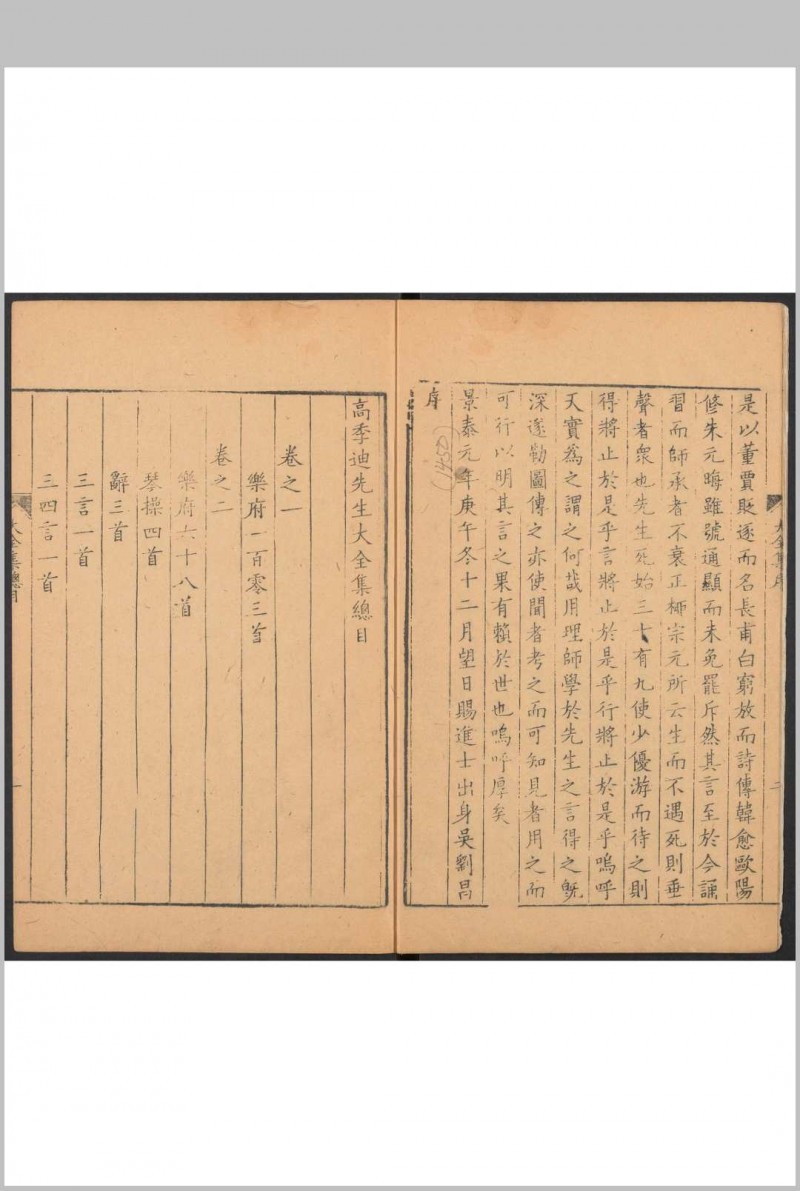 是以董賈貶逐而名長甫白窮放而詩傳韓愈歐陽
修朱元晦雖號通顯而未免罷斥然其言至於今誦
習而師承者不衰正柳宗元所云生而不遇死則垂
聲者眾也先生死始三十有九使少優游而待之則
得將止於是乎言將止於是乎行將止於是乎嗚呼
天實為之謂之何哉用理師學於先生之言得之既
深遂勒圖傳之亦使聞者考之而可知見者用之而
可行以明其言之果有賴於世也嗚呼厚矣
景泰元年庚午冬十二月望日賜進士出身吳劉昌
序
(1450)
大全集序
二
高季迪先生大全集總目
卷之一
樂府一百零三首
卷之二
樂府六十八首
琴操四首
辭三首
三言一首
三四言一首
大全集總目
一